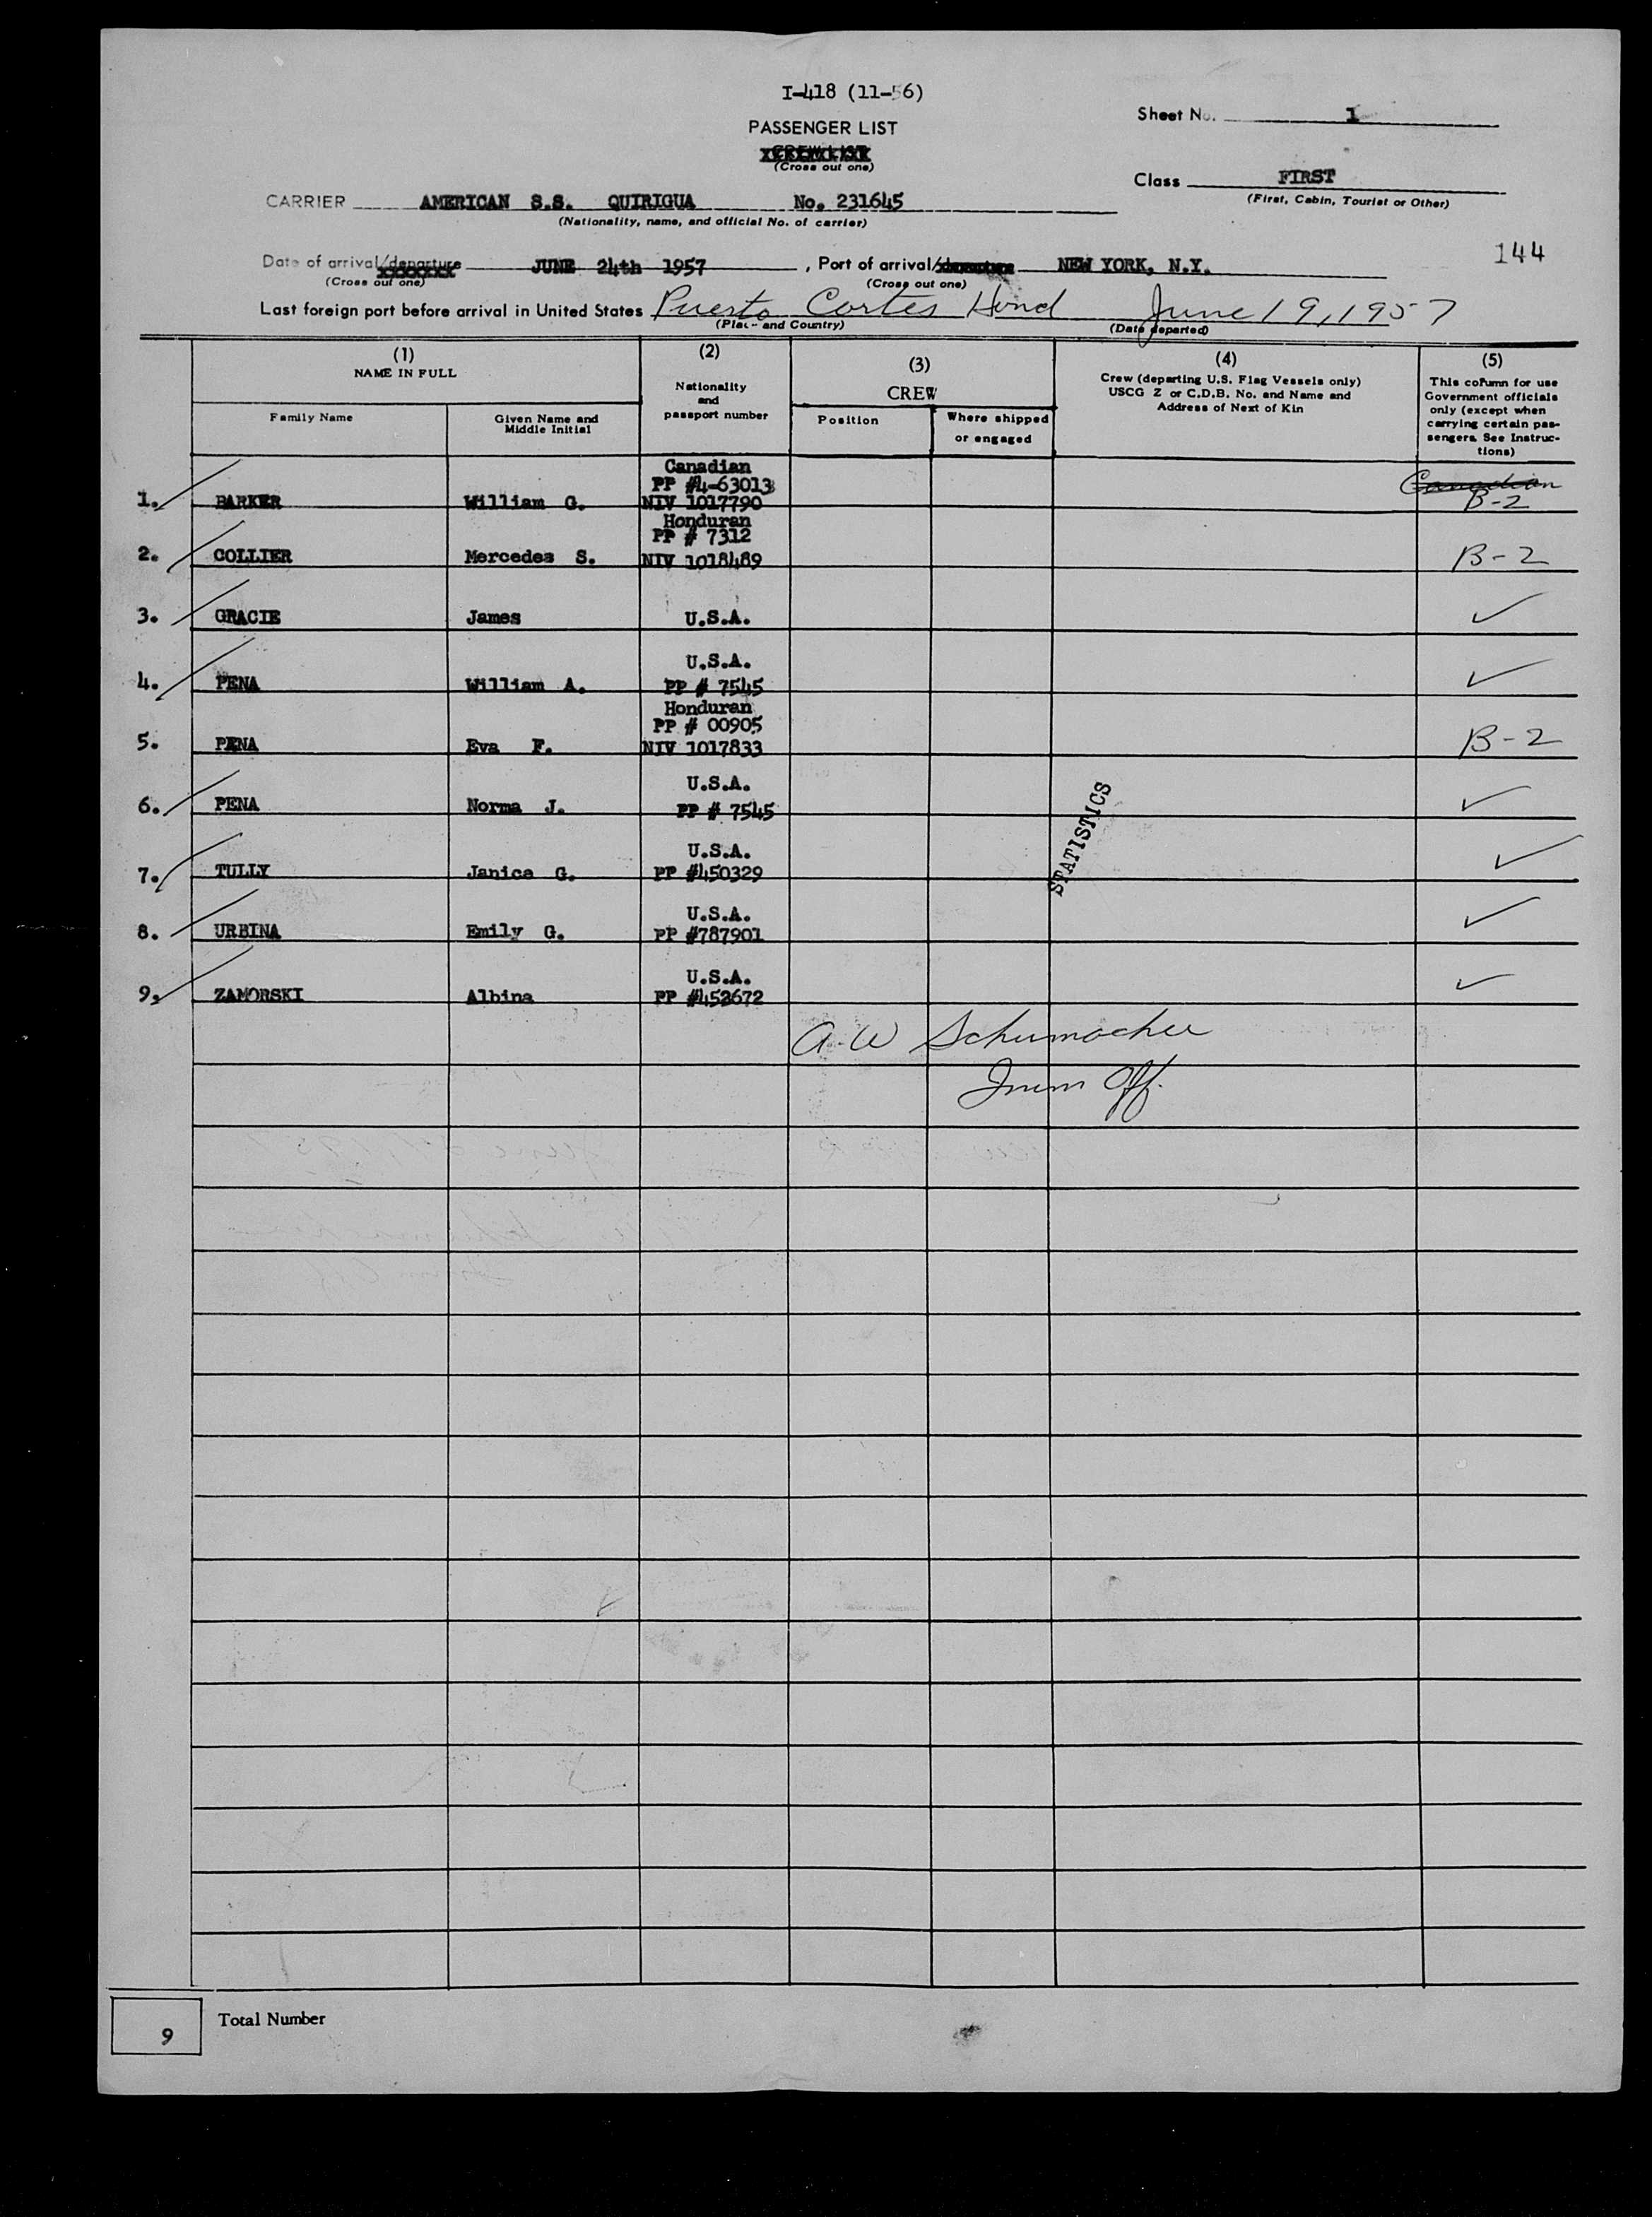 I-418 (11-56)
Sheet No. 1
PASSENGER LIST
(Cross out one)
Class FIRST
(First, Cabin, Tourist or Other)
CARRIER AMERICAN S.S. QUIRIGUA No. 231645
(Nationality, name, and official No. of carrier)
144
Date of arrival/departure JUNE 24th 1957, Port of arrival/departure NEW YORK, N.Y.
(Cross out one) (Cross out one)
Last foreign port before arrival in United States Puerto Cortes Hond June 19, 1957
(Place and Country) (Date departed)
(1) (2) (3) (4) (5)
NAME IN FULL
Family Name
Given Name and Middle Initial
Nationality and passport number
CREW
Position
Where shipped or engaged
Crew (departing U.S. Flag Vessels only)
USCG Z or C.D.B. No. and Name and
Address of Next of Kin
This column for use
Government officials
only (except when
carrying certain pas-
sengers. See Instruc-
tions)
Canadian
PP #4-63013 Canadian
1. BARKER William G. NIV 1017790 B-2
Honduran
PP # 7312
2. COLLIER Mercedes S. NIV 1018489 B-2
3. GRACIE James U.S.A. ✓
U.S.A.
4. PENA William A. PP # 7545 ✓
Honduran
PP # 00905
5. PENA Eva F. NIV 1017833 B-2
U.S.A.
6. PENA Norma J. PP # 7545 ✓
STATISTICS
U.S.A.
7. TULLY Janice G. PP #450329 ✓
U.S.A.
8. URBINA Emily G. PP #787901 ✓
U.S.A.
9. ZAMORSKI Albina PP #452672 ✓
A. W Schumacher
Imm Off.
9 Total Number